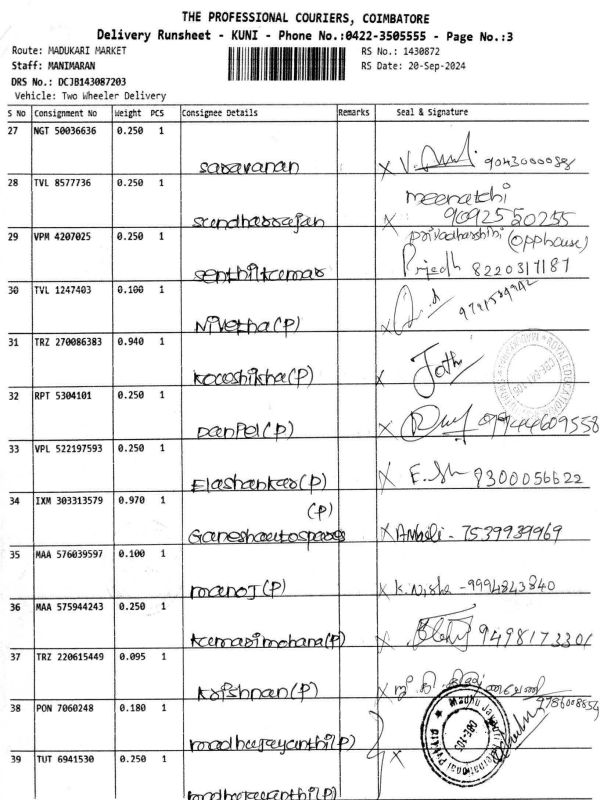 THE PROFESSIONAL COURIERS, COIMBATORE
Delivery Runsheet - KUNI - Phone No.:0422-3505555 - Page No.:3
Route: MADUKARI MARKET RS No.: 1430872
Staff: MANIMARAN RS Date: 20-Sep-2024
DRS No.: DCJB143087203
Vehicle: Two Wheeler Delivery
S No Consignment No Weight PCS Consignee Details Remarks Seal & Signature
27 NGT 50036636 0.250 1
saravanan X
28 TVL 8577736 0.250 1 meenatchi
sundharrajan X 9092550255
29 VPM 4207025 0.250 1 (opphouse)
senthilkumar 8220317187
30 TVL 1247403 0.100 1
Nivetha(P) X
31 TRZ 270086383 0.940 1
X
32 RPT 5304101 0.250 1
X 09944609558
33 VPL 522197593 0.250 1
Elashankar(P) X 9300056622
34 IXM 303313579 0.970 1 (P)
Ganeshautospares X - 7539939969
35 MAA 576039597 0.100 1
manoj(P) X K. Nisha - 9994843840
36 MAA 575944243 0.250 1
kumarimohana(P) X 9498173301
37 TRZ 220615449 0.095 1
krishnan(P) X
38 PON 7060248 0.180 1 9786008854
madhujeyanthi(P)
39 TUT 6941530 0.250 1 X